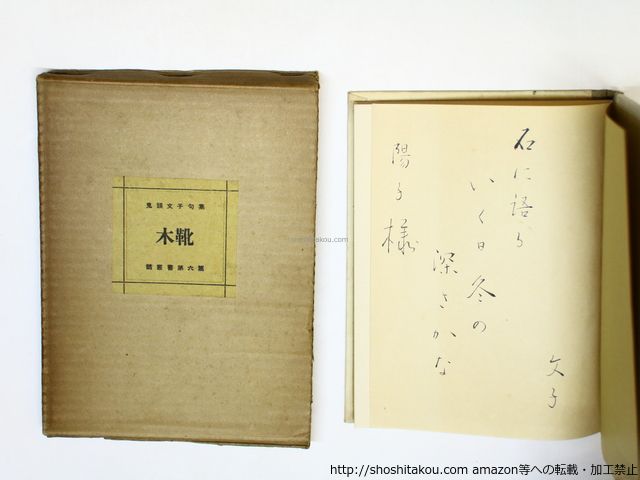 鬼頭文子句集
木靴
鶴叢書第六篇
石に語る
いく日冬の
深さかな
文子
陽子様
shoshitakou.com
http://shoshitakou.com amazon等への転載・加工禁止